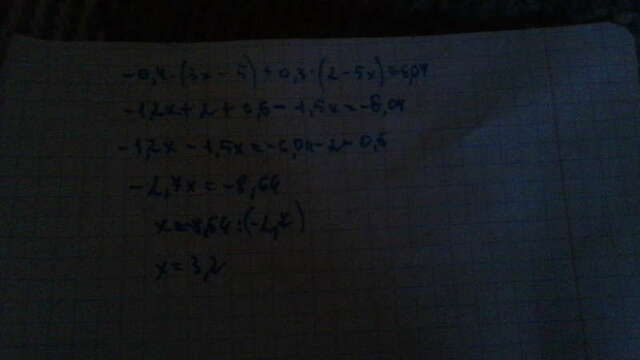 -0,4·(3x-5)+0,3·(2-5x)=-6,04
-1,2x+2+0,6-1,5x=-6,04
-1,2x-1,5x=-6,04-2-0,6
-2,7x=-8,64
x=-8,64:(-2,7)
x=3,2